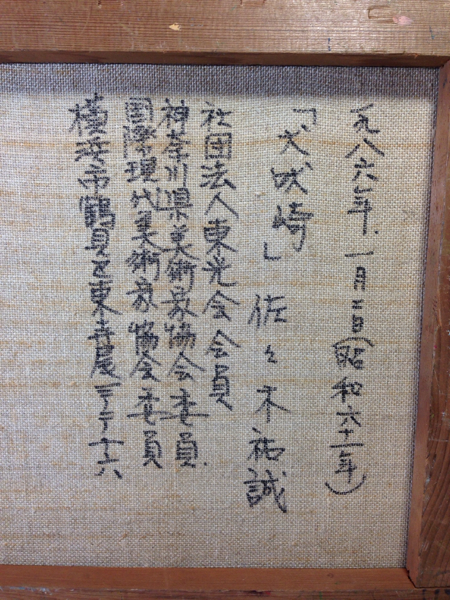 一九八六年.一月二日(昭和六十一年)
「犬吠崎」 佐々木祐誠
社団法人東光会会員
神奈川県美術家協会委員.
国際現代美術家協会委員
横浜市鶴見区東寺尾